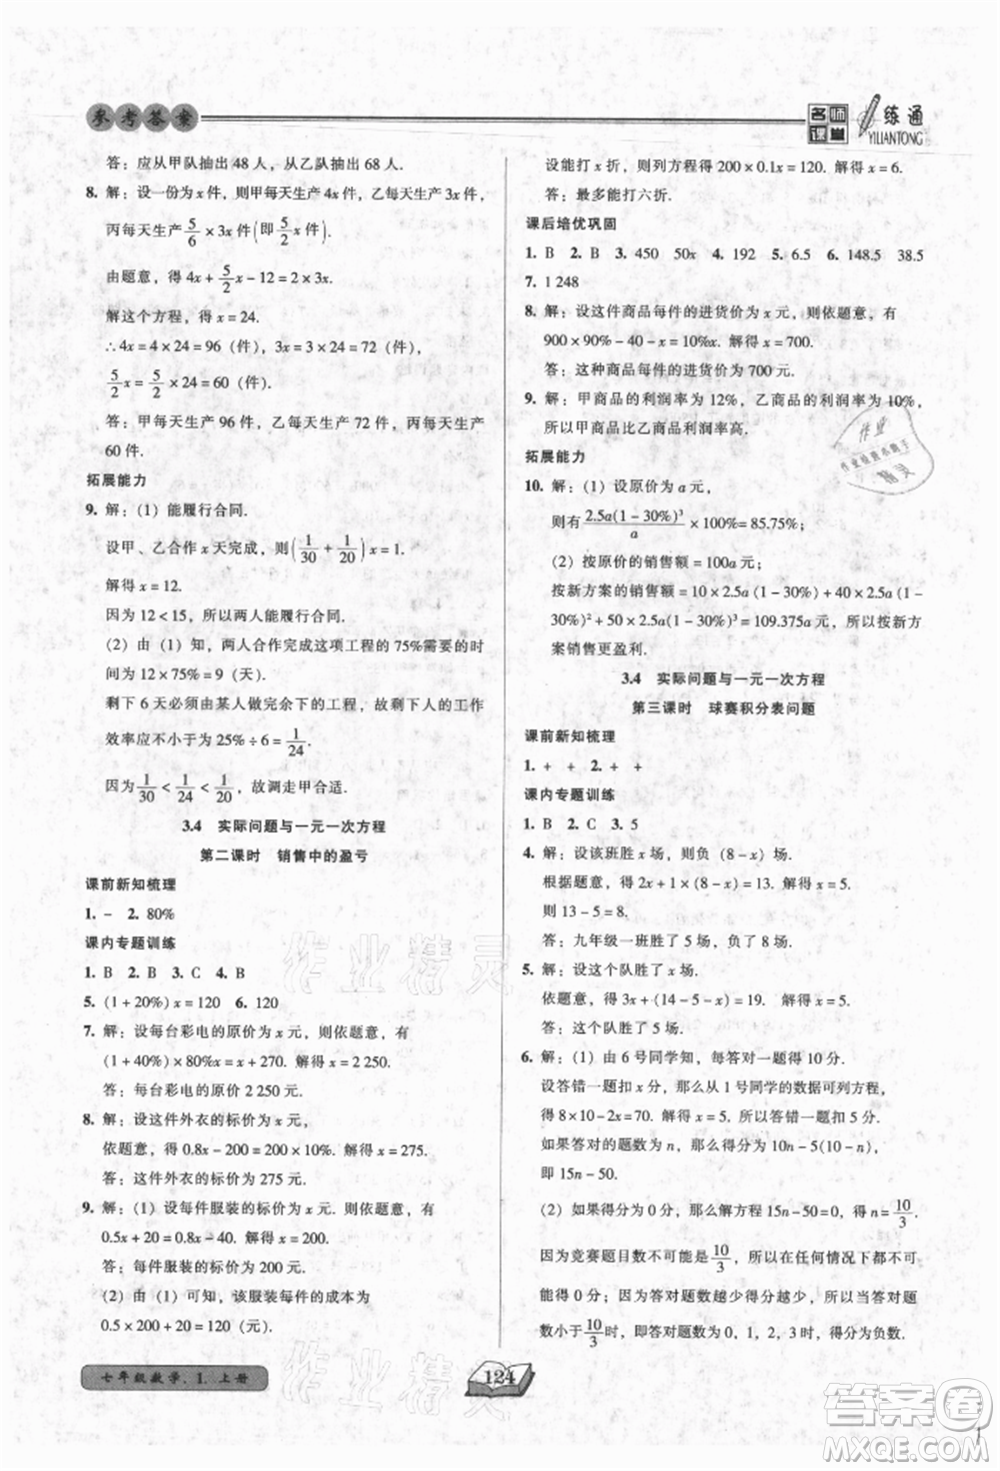 参考答案
名师课堂 一练通
YILIANTONG
答：应从甲队抽出 48 人，从乙队抽出 68 人.
8. 解：设一份为 x 件，则甲每天生产 4x 件，乙每天生产 3x 件，
丙每天生产 5/6 × 3x 件(即 5/2 x 件).
由题意，得 4x + 5/2 x − 12 = 2 × 3x.
解这个方程，得 x = 24.
∴ 4x = 4 × 24 = 96（件），3x = 3 × 24 = 72（件），
5/2 x = 5/2 × 24 = 60（件）.
答：甲每天生产 96 件，乙每天生产 72 件，丙每天生产
60 件.
拓展能力
9. 解：(1) 能履行合同.
设甲、乙合作 x 天完成，则(1/30 + 1/20) x = 1.
解得 x = 12.
因为 12 < 15，所以两人能履行合同.
(2) 由（1）知，两人合作完成这项工程的 75% 所用的时
间为 12 × 75% = 9（天）.
剩下 6 天必须由某人做完余下的工程，故剩下人的工作
效率应不小于为 25% ÷ 6 = 1/24.
因为 1/30 < 1/24 < 1/20，故调走甲合适.
3.4 实际问题与一元一次方程
第二课时 销售中的盈亏
课前新知梳理
1. − 2. 80%
课内专题训练
1. B 2. B 3. C 4. B
5. (1 + 20%) x = 120 6. 120
7. 解：设每台彩电的原价为 x 元，则依题意，有
(1 + 40%) × 80% x = x + 270. 解得 x = 2 250.
答：每台彩电的原价 2 250 元.
8. 解：设这件外衣的标价为 x 元，
依题意，得 0.8x − 200 = 200 × 10%. 解得 x = 275.
答：这件外衣的标价为 275 元.
9. 解：(1) 设每件服装的标价为 x 元. 则依题意，有
0.5x + 20 = 0.8x − 40. 解得 x = 200.
答：每件服装的标价为 200 元.
(2) 由（1）可知，该服装每件的成本为
0.5 × 200 + 20 = 120（元）.
设能打 x 折，则列方程得 200 × 0.1x = 120. 解得 x = 6.
答：最多能打六折.
课后培优巩固
1. B 2. B 3. 450 50x 4. 192 5. 6.5 6. 148.5 38.5
7. 1 248
8. 解：设这件商品每件的进货价为 x 元，依题意，有
900 × 90% − 40 − x = 10% x. 解得 x = 700.
答：这种商品每件的进货价为 700 元.
9. 解：甲商品的利润率为 12%，乙商品的利润率为 10%，
所以甲商品比乙商品利润率高.
拓展能力
10. 解：(1) 设原价为 a 元，
则有 2.5a(1 − 30%)³/a × 100% = 85.75%；
(2) 按原价的销售额 = 100a 元；
按新方案的销售额 = 10 × 2.5a (1 − 30%) + 40 × 2.5a (1 −
30%)² + 50 × 2.5a (1 − 30%)³ = 109.375a 元，所以按新方
案销售更盈利.
3.4 实际问题与一元一次方程
第三课时 球赛积分表问题
课前新知梳理
1. + + 2. + +
课内专题训练
1. B 2. C 3. 5
4. 解：设该班胜 x 场，则该班负（8 − x）场.
根据题意，得 2x + 1 × (8 − x) = 13. 解得 x = 5.
则 13 − 5 = 8.
答：九年级一班胜了 5 场、负了 8 场.
5. 解：设这个队胜了 x 场.
依题意，得 3x + (14 − 5 − x) = 19. 解得 x = 5.
答：这个队胜了 5 场.
6. 解：(1) 由 6 号同学知，每答对一题得 10 分.
设答错一题扣 x 分，则从 1 号同学的答题情况可列方程，
得 8 × 10 − 2x = 70. 解得 x = 5. 所以答错一题扣 5 分.
如果答对的题数为 n，那么得分为 10n − 5(10 − n)，
即 15n − 50.
(2) 如果得分为 0 分，那么解方程 15n − 50 = 0，得 n = 10/3.
因为竞赛题目数不可能是 10/3，所以在任何情况下都不可能
得到 0 分；因为答对题数越少，得分越少，所以当答对题
数小于 10/3 时，即答对题数为 0，1，2，3 时，得分为负数.
七年级数学．1．上册
124
作业精灵
作业精灵
作业
精灵
答案圈
MXQE.COM